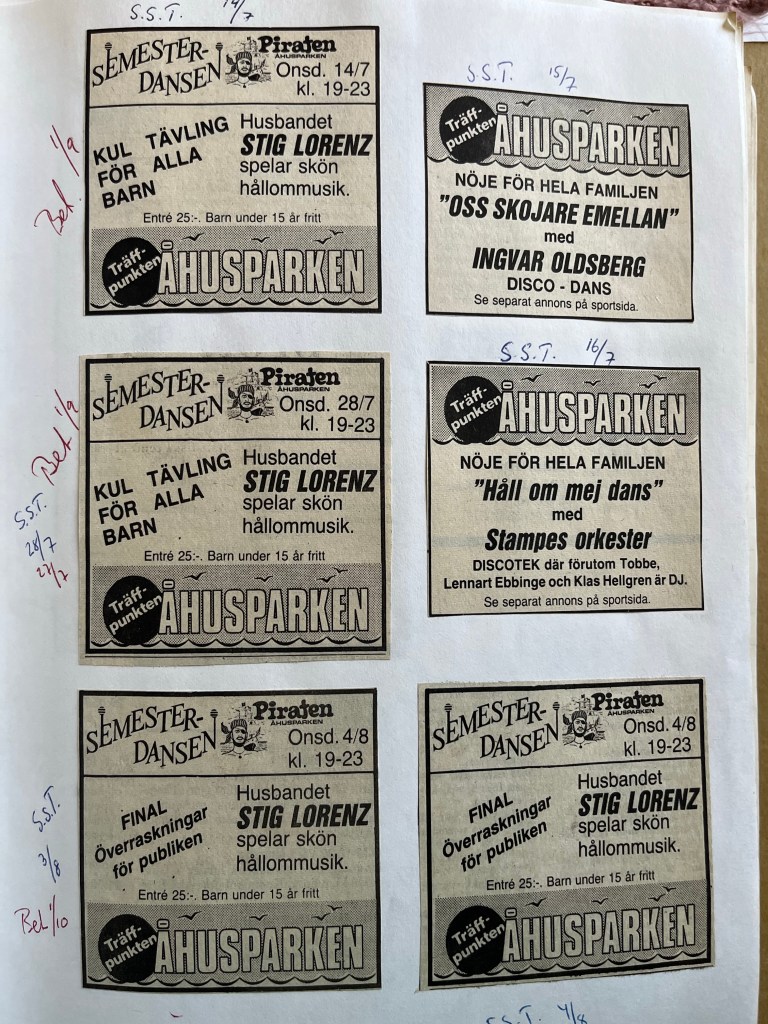 S.S.T. 14/7
SEMESTER-
DANSEN
Piraten
ÅHUSPARKEN
Onsd. 14/7
kl. 19-23
KUL TÄVLING
FÖR ALLA
BARN
Husbandet
STIG LORENZ
spelar skön
hållommusik.
Entré 25:-. Barn under 15 år fritt
Träff-
punkten
ÅHUSPARKEN
Bet. 1/9
S.S.T. 15/7
Träff-
punkten
ÅHUSPARKEN
NÖJE FÖR HELA FAMILJEN
"OSS SKOJARE EMELLAN"
med
INGVAR OLDSBERG
DISCO - DANS
Se separat annons på sportsida.
Bet 1/9
S.S.T.
28/7
27/7
SEMESTER-
DANSEN
Piraten
ÅHUSPARKEN
Onsd. 28/7
kl. 19-23
KUL TÄVLING
FÖR ALLA
BARN
Husbandet
STIG LORENZ
spelar skön
hållommusik.
Entré 25:-. Barn under 15 år fritt
Träff-
punkten
ÅHUSPARKEN
S.S.T. 16/7
Träff-
punkten
ÅHUSPARKEN
NÖJE FÖR HELA FAMILJEN
"Håll om mej dans"
med
Stampes orkester
DISCOTEK där förutom Tobbe,
Lennart Ebbinge och Klas Hellgren är DJ.
Se separat annons på sportsida.
S.S.T.
3/8
Bet 1/10
SEMESTER-
DANSEN
Piraten
ÅHUSPARKEN
Onsd. 4/8
kl. 19-23
FINAL
Överraskningar
för publiken
Husbandet
STIG LORENZ
spelar skön
hållommusik.
Entré 25:-. Barn under 15 år fritt
Träff-
punkten
ÅHUSPARKEN
SEMESTER-
DANSEN
Piraten
ÅHUSPARKEN
Onsd. 4/8
kl. 19-23
FINAL
Överraskningar
för publiken
Husbandet
STIG LORENZ
spelar skön
hållommusik.
Entré 25:-. Barn under 15 år fritt
Träff-
punkten
ÅHUSPARKEN
S.S.T. 4/8